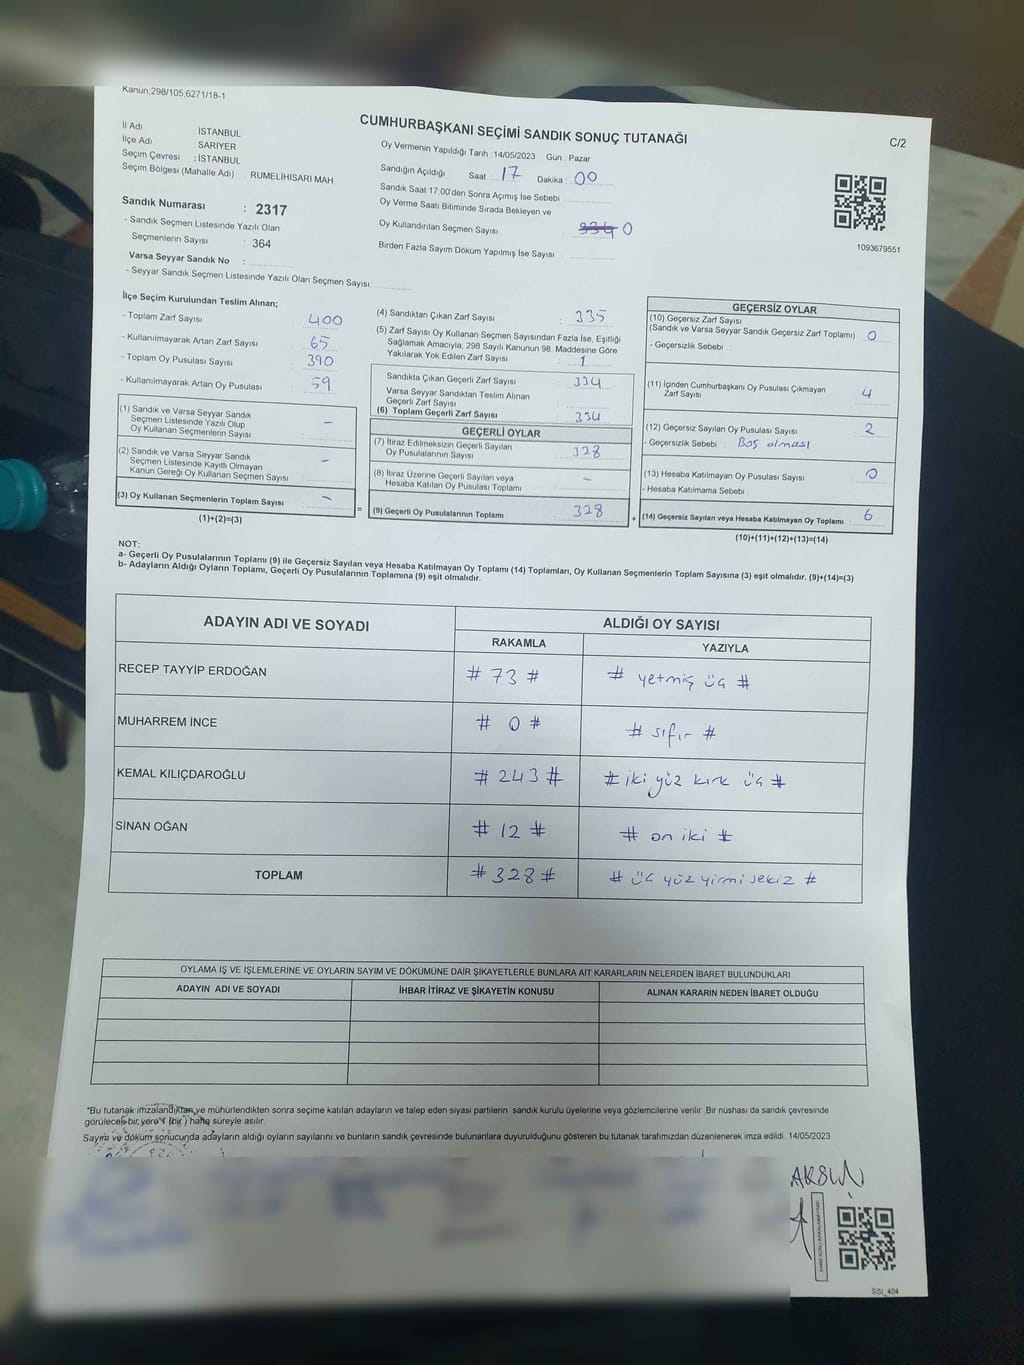 Kanun;298/105;6271/18-1
CUMHURBAŞKANI SEÇİMİ SANDIK SONUÇ TUTANAĞI
C/2
İl Adı İSTANBUL
İlçe Adı SARIYER
Seçim Çevresi : İSTANBUL
Seçim Bölgesi (Mahalle Adı) RUMELİHİSARI MAH
Sandık Numarası : 2317
- Sandık Seçmen Listesinde Yazılı Olan
Seçmenlerin Sayısı : 364
Varsa Seyyar Sandık No :
- Seyyar Sandık Seçmen Listesinde Yazılı Olan Seçmen Sayısı:
Oy Vermenin Yapıldığı Tarih :14/05/2023 Gün : Pazar
Sandığın Açıldığı Saat : 17 Dakika : 00
Sandık Saat 17:00'den Sonra Açımış İse Sebebi :
Oy Verme Saati Bitiminde Sırada Bekleyen ve
Oy Kullandırılan Seçmen Sayısı : 0
Birden Fazla Sayım Döküm Yapılmış İse Sayısı :
1093679551
İlçe Seçim Kurulundan Teslim Alınan;
- Toplam Zarf Sayısı : 400
- Kullanılmayarak Artan Zarf Sayısı : 65
- Toplam Oy Pusulası Sayısı : 390
- Kullanılmayarak Artan Oy Pusulası : 59
(1) Sandık ve Varsa Seyyar Sandık
Seçmen Listesinde Yazılı Olup
Oy Kullanan Seçmenlerin Sayısı : -
(2) Sandık ve Varsa Seyyar Sandık
Seçmen Listesinde Kayıtlı Olmayan
Kanun Gereği Oy Kullanan Seçmen Sayısı : -
(3) Oy Kullanan Seçmenlerin Toplam Sayısı : -
(1)+(2)=(3)
=
(4) Sandıktan Çıkan Zarf Sayısı : 335
(5) Zarf Sayısı Oy Kullanan Seçmen Sayısından Fazla İse, Eşitliği
Sağlamak Amacıyla, 298 Sayılı Kanunun 98. Maddesine Göre
Yakılarak Yok Edilen Zarf Sayısı : 1
Sandıkta Çıkan Geçerli Zarf Sayısı : 334
Varsa Seyyar Sandıktan Teslim Alınan
Geçerli Zarf Sayısı :
(6) Toplam Geçerli Zarf Sayısı : 334
GEÇERLİ OYLAR
(7) İtiraz Edilmeksizin Geçerli Sayılan
Oy Pusulalarının Sayısı : 328
(8) İtiraz Üzerine Geçerli Sayılan veya
Hesaba Katılan Oy Pusulası Toplamı : -
(9) Geçerli Oy Pusulalarının Toplamı : 328
+
GEÇERSİZ OYLAR
(10) Geçersiz Zarf Sayısı
(Sandık ve Varsa Seyyar Sandık Geçersiz Zarf Toplamı) : 0
- Geçersizlik Sebebi :
(11) İçinden Cumhurbaşkanı Oy Pusulası Çıkmayan
Zarf Sayısı : 4
(12) Geçersiz Sayılan Oy Pusulası Sayısı : 2
- Geçersizlik Sebebi : Boş olması
(13) Hesaba Katılmayan Oy Pusulası Sayısı : 0
- Hesaba Katılmama Sebebi :
(14) Geçersiz Sayılan veya Hesaba Katılmayan Oy Toplamı : 6
(10)+(11)+(12)+(13)=(14)
NOT:
a- Geçerli Oy Pusulalarının Toplamı (9) ile Geçersiz Sayılan veya Hesaba Katılmayan Oy Toplamı (14) Toplamları, Oy Kullanan Seçmenlerin Toplam Sayısına (3) eşit olmalıdır. (9)+(14)=(3)
b- Adayların Aldığı Oyların Toplamı, Geçerli Oy Pusulalarının Toplamına (9) eşit olmalıdır.
ADAYIN ADI VE SOYADI ALDIĞI OY SAYISI
RAKAMLA YAZIYLA
RECEP TAYYİP ERDOĞAN # 73 # # yetmiş üç #
MUHARREM İNCE # 0 # # sıfır #
KEMAL KILIÇDAROĞLU # 243 # # iki yüz kırk üç #
SİNAN OĞAN # 12 # # on iki #
TOPLAM # 328 # # üç yüz yirmi sekiz #
OYLAMA İŞ VE İŞLEMLERİNE VE OYLARIN SAYIM VE DÖKÜMÜNE DAİR ŞİKAYETLERLE BUNLARA AİT KARARLARIN NELERDEN İBARET BULUNDUKLARI
ADAYIN ADI VE SOYADI İHBAR İTİRAZ VE ŞİKAYETİN KONUSU ALINAN KARARIN NEDEN İBARET OLDUĞU
*Bu tutanak imzalandıktan ve mühürlendikten sonra seçime katılan adayların ve talep eden siyasi partilerin sandık kurulu üyelerine veya gözlemcilerine verilir. Bir nüshası da sandık çevresinde
görülecek bir yere 1 (bir) hafta süreyle asılır
Sayım ve döküm sonucunda adayların aldığı oyların sayılarını ve bunların sandık çevresinde bulunanlara duyurulduğunu gösteren bu tutanak tarafımızdan düzenlenerek imza edildi. 14/05/2023
SSI_404